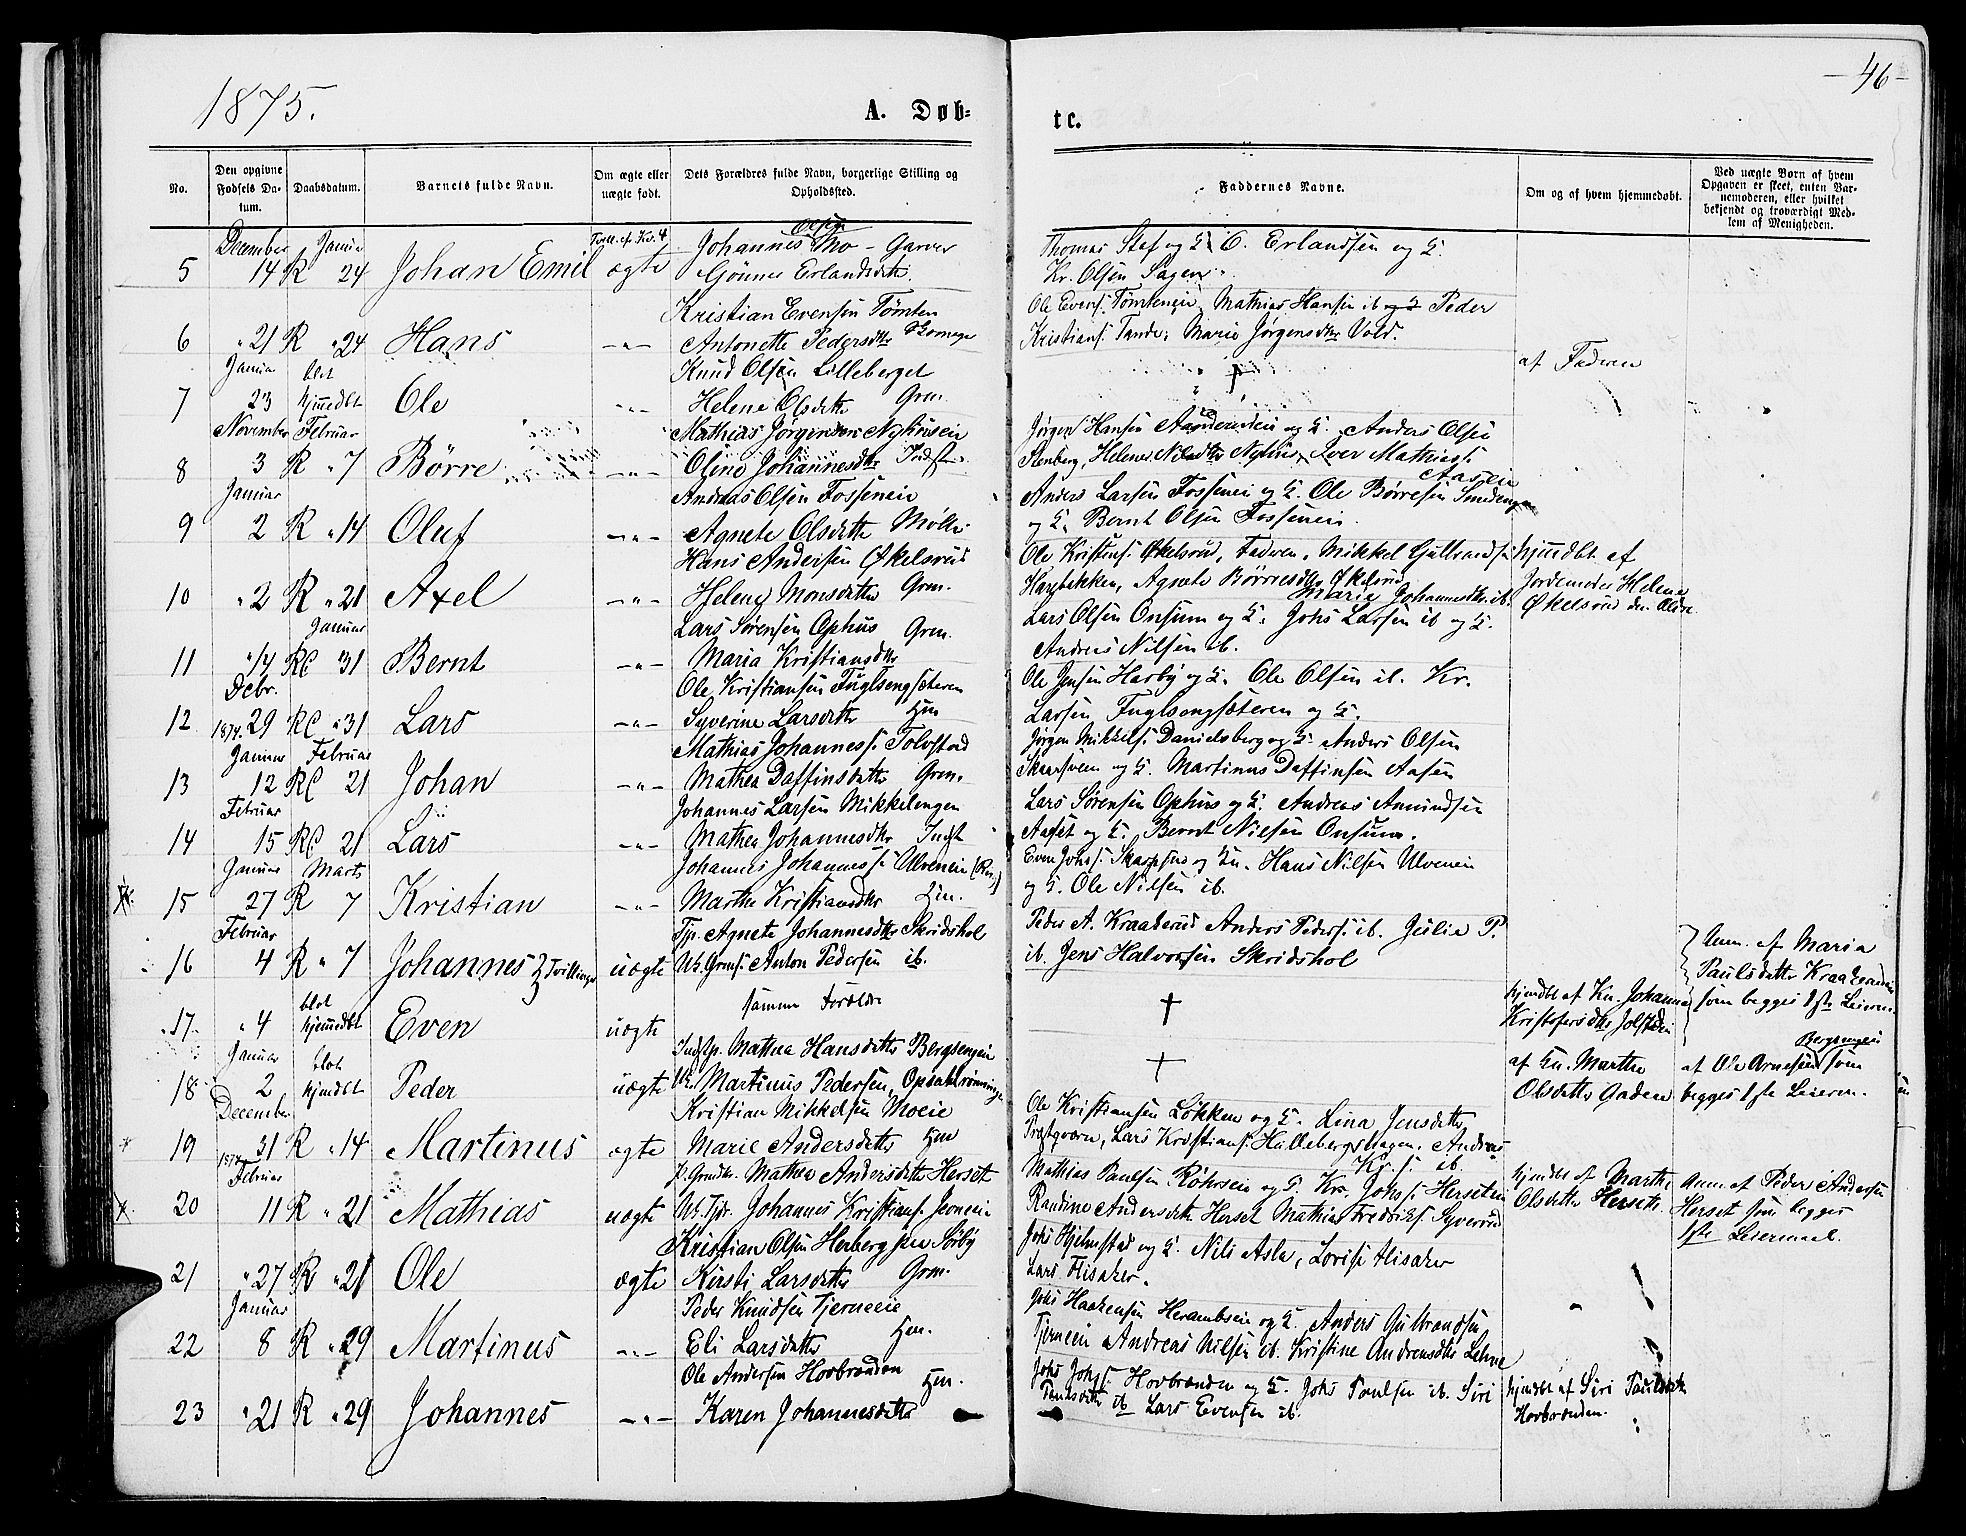 1875.
A. Døb=
tc.
46
No.
Den opgivne Fødsels Datum.
Daabsdatum.
Barnets fulde Navn.
Om ægte eller uægte født.
Dets Forældres fulde Navn, borgerlige Stilling og Opholdssted.
Faddernes Navne.
Om og af hvem hjemmedøbt.
Ved uægte Børn af hvem Opgaven er skeet, enten Barnemoderen, eller hvilket bekjendt og troværdigt Medlem af Menigheden.
December Januar Tvill. af No. 4 Johannes Olsen Mo - Garver
5 14 R 24 Johan Emil ægte Erlandsdtr.
Thomas og E. O. Erlandsen og E.
Kr. Olsen Sagen
Kristian Evensen Tømten
6 " 21 R " 24 Hans -"- Antonette Pedersdtr
Ole Evens. Tømteneie, Mathias Hansen ib og E Peder
Kristians. Tande, Marie Jørgensdtr Vold.
Januar blot Knud Olsen Lilleberget
7 23 hjmdbt Ole -"- Helene Olsdtr Grm.
†
af Faderen
November Februar Mathias Jørgensen Nyhuseie
8 3 R " 7 Børre -"- Oline Johannesdtr Indst.
Jørgen Hansen og E. Anders Olsen
Stenberg, Helene Nilsdtr Nyhus, Iver Mathias.
Aaseie
Januar Andreas Olsen Fosseneie
9 2 R " 14 Oluf -"- Agnete Olsdtr Møller
Anders Larsen Fosseneie og E. Ole Børresen Smedengen
og E. Bernt Olsen Fosseneie.
Hans Andersen Økelsrud
10 " 2 R " 21 Axel -"- Helene Monsdtr Grm.
Ole Kristians. Økelsrud, Faderen, Mikkel Gulbrandsen
Agnete Børresdtr Økelsrud Maria Johannesdtr ib.
hjmdbt af
Jordemoder Helene
Økelsrud den Ældre
Januar Lars Sørensen Ophus Grm.
11 " 14 R C " 31 Bernt -"- Maria Kristiansdtr
Lars Olsen Onsum og E. Johs Larsen ib og E.
Andreas Nilsen ib.
Decbr. Ole Kristiansen Fuglsengsæteren
12 1874. 29 R C " 31 Lars -"- Syverine Larsdtr Hm
Ole Jensen Harby og E. Ole Olsen ib. Kr.
Larsen Fuglsengsæteren og E.
Januar Februar Mathias Johanness. Tolvstad
13 12 R C 21 Johan -"- Mathea Daffinsdtr Grm.
Jørgen Mikkels. Danielsberg og E. Anders Olsen
og E. Martinus Daffinsen Aasen
Februar Johannes Larsen Mikkelengen
14 15 R C 21 Lars -"- Mathea Johannesdtr Indst
Lars Sørensen Ophus og E. Andreas Amundsen
Aaset og E. Bernt Nilsen Onsum.
Januar Marts Johannes Johanness. Ulveneie
15 27 R 7 Kristian -"- Marthe Kristiansdtr Hm.
Even Johs. og En. Hans Nilsen Ulveneie
og E. Ole Nilsen ib.
Februar Tjp. Agnete Johannesdtr Skridshol
16 4 R " 7 Johannes } Tvillinger uægte Uk. Grms. Anton Pedersen ib.
Peder A. Kraakerud Anders Peders. ib. Julie P.
ib. Jens Halvorsen Skridshol
Anm. af Maria
Paulsdatter
som begges 1ste Leierm.
blot samme Forældre
17 " 4 hjemmedbt Even uægte
†
hjmdbt af Kn. Johanna
Kristofersdtr
Januar blot Indstp. Mathea Hansdatter Bergsengeie
18 2 hjmdbt Peder uægte Uk. Martinus Pedersen
†
af En. Marthe
Olsdatter Gaden
af Ole Arnesen Bergsengeie som
begges 1ste Leierm.
December Kristian Mikkelsen Moeie
19 1874 31 R " 14 Martinus ægte Marie Andersdtr Hm
Ole Kristiansen Løkken og E. Lina Jensdtr
Lars Kristians. Hallebergshagen. Andreas
Kr. S. ib.
Februar P. Grmdtr. Mathea Andersdtr Herset
20 11 R " 21 Mathias uægte Uk. Tjdr. Johannes Kristians.
Mathias Paulsen Røhrseie og E. Kr. Johs. Herseteie
Randine Andersdtr Herset Mathias Fredriks. Syverud
hjmdbt af Marthe
Olsdatter Herseth.
Anm. af Peder Andersen
Herset som begges
1ste Leiermaal.
Kristian Olsen Herberg
21 " 27 R " 21 Ole ægte Kirsti Larsdatter Grm.
Johs Hjelmstad og E. Nils Asla, Lovise Alisaker
Lars Alisaker.
Januar Peder Knudsen Tjerneeie
22 8 R " 29 Martinus -"- Eli Larsdatter Hm.
Johs Haakensen og E. Anders Gulbrandsen
Tjerneeie Andreas Nilsen ib. Kristine Andreasdtr
Ole Andersen Hovbrenden Hm.
23 " 21 R " 29 Johannes -"- Karen Johannesdtr
Johs Johs. Hovbrenden og E. Johs Paulsen ib. Siri
Paulsdtr ib Lars Evensen ib.
hjmdbt af Siri Paulsdtr
Hovbrenden.